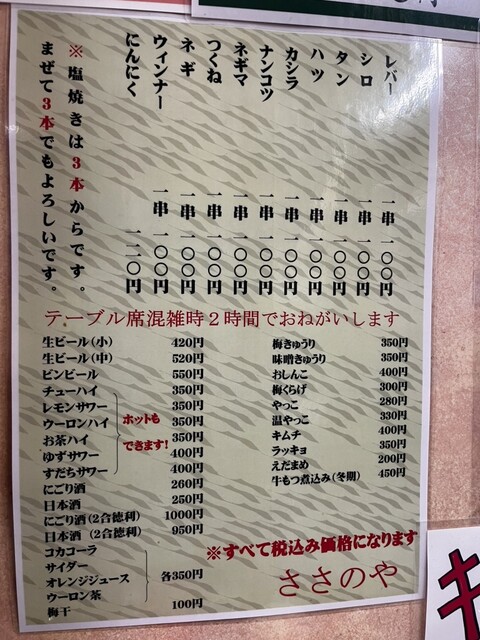 レバー 一串 一〇〇円
シロ 一串 一〇〇円
タン 一串 一〇〇円
ハツ 一串 一〇〇円
カシラ 一串 一〇〇円
ナンコツ 一串 一〇〇円
ネギマ 一串 一〇〇円
つくね 一串 一〇〇円
ネギ 一串 一〇〇円
ウィンナー 一串 一〇〇円
にんにく 一二〇円
※塩焼きは3本からです。
まぜて3本でもよろしいです。
テーブル席混雑時2時間でおねがいします
生ビール(小) 420円
生ビール(中) 520円
ビンビール 550円
チューハイ 350円
レモンサワー 350円
ウーロンハイ 350円
お茶ハイ 350円
ゆずサワー 400円
すだちサワー 400円
ホットも
できます!
にごり酒 260円
日本酒 250円
にごり酒(2合徳利) 1000円
日本酒(2合徳利) 950円
コカコーラ
サイダー
オレンジジュース 各350円
ウーロン茶
梅干 100円
梅きゅうり 350円
味噌きゅうり 350円
おしんこ 400円
梅くらげ 300円
やっこ 280円
温やっこ 330円
キムチ 400円
ラッキョ 350円
えだまめ 200円
牛もつ煮込み(冬期) 450円
※すべて税込み価格になります
ささのや